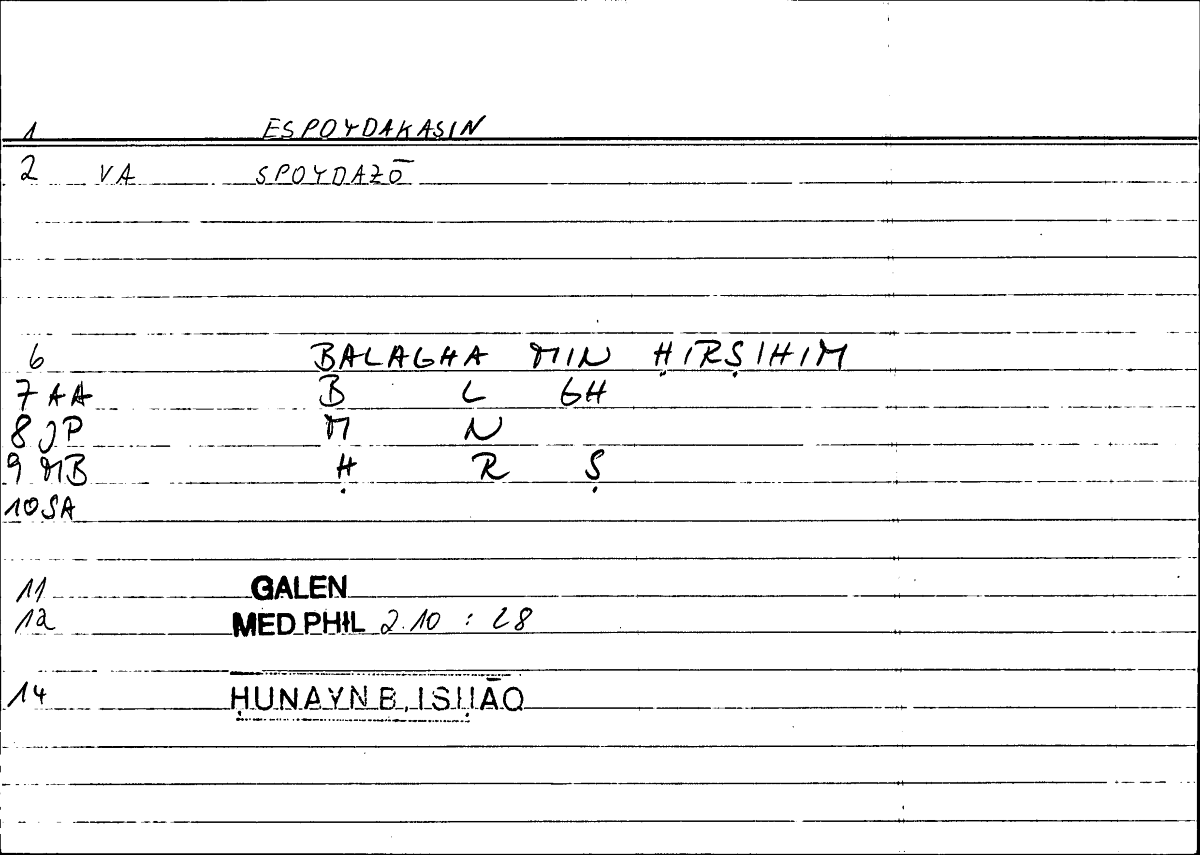 1 ESPOYDAKASIN
2 VA SPOYDAZŌ
6 BALAGHA MIN ḤIRṢIHIM
7 AA B L GH
8 JP M N
9 MB Ḥ R Ṣ
10 SA
11 GALEN
12 MED PHIL 2.10 : 28
14 ḤUNAYN B. ISḤĀQ